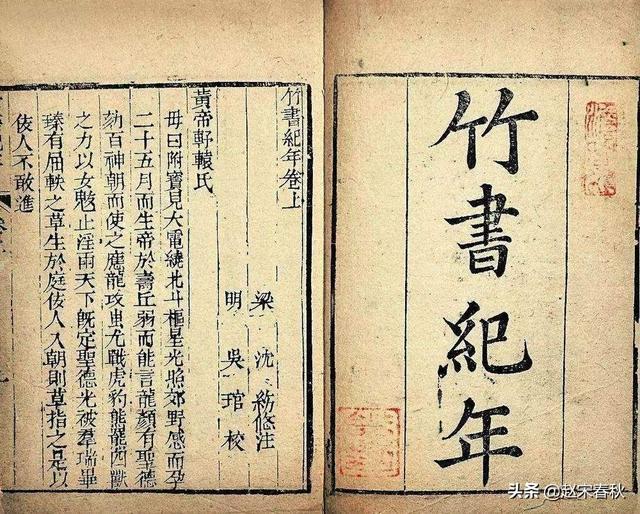 竹書紀年
竹書紀年卷上
梁 沈 注
明 吳 琯 校
黃帝軒轅氏
母曰附寶見大電繞北斗樞星光照郊野感而孕
二十五月而生帝於壽丘弱而能言龍顏有聖德
劾百神朝而使之應龍攻蚩尤戰虎豹熊羆四獸
之力以女魃止淫雨天下既定聖德光被羣瑞畢
臻有屈軼之草生於庭佞人入朝則草指之是以
佞人不敢進
头条 @赵宋春秋